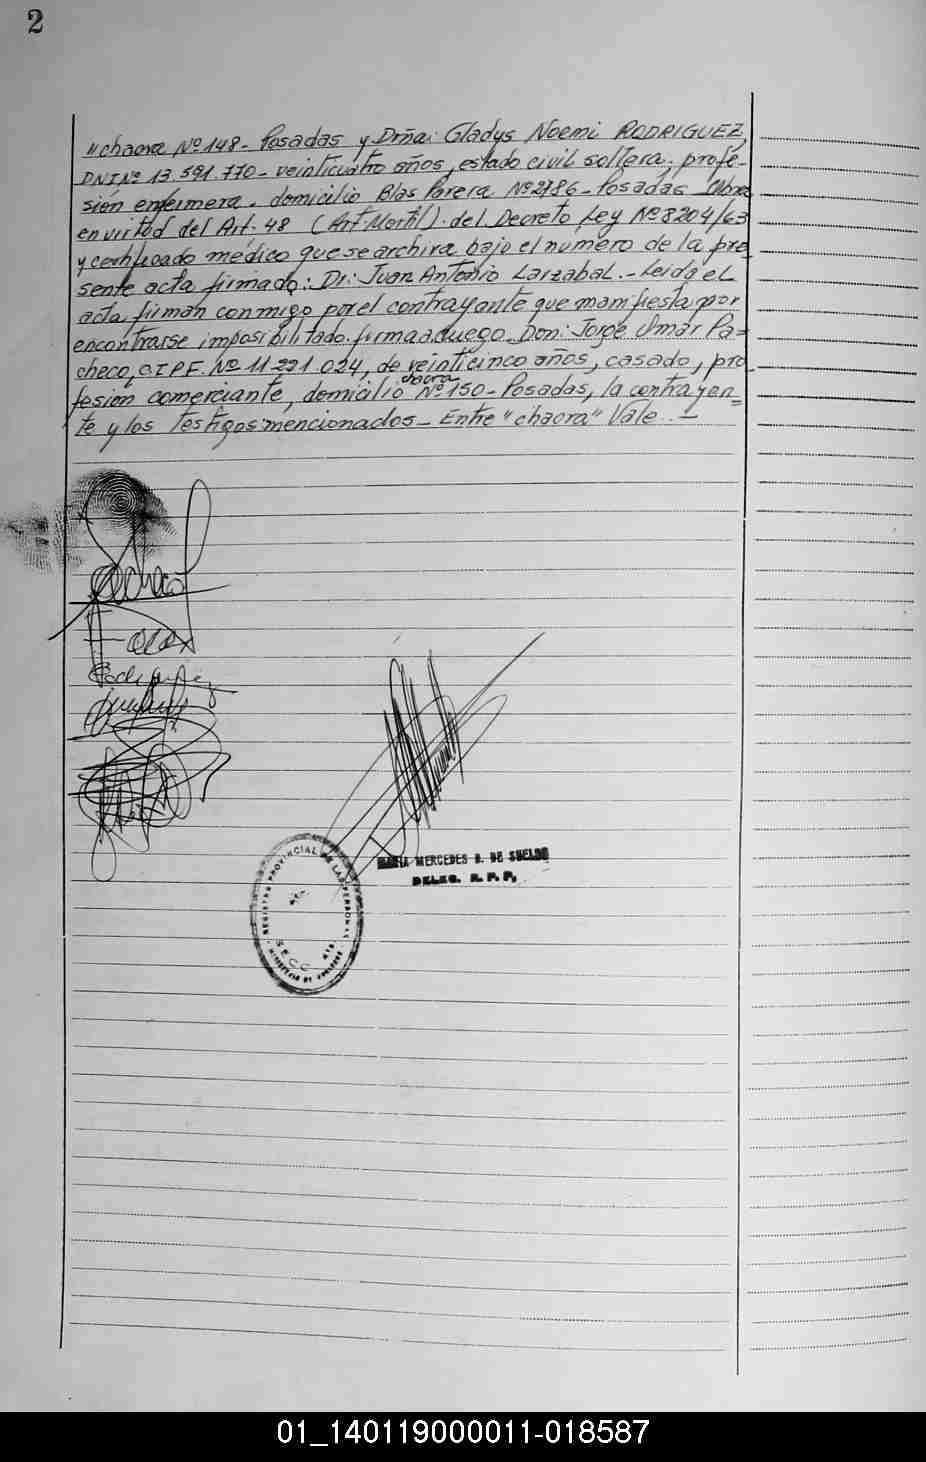 2
"chacra Nº 148- Posadas y Drña: Gladys Noemi RODRIGUEZ,
DNI Nº 13.591.770- veinticuatro años, estado civil soltera, profe-
sión enfermera. domicilio Blas Parera Nº 2786- Posadas
en virtud del Art- 48 (Art-Mortil). del Decreto Ley Nº 8204/63
y certificado médico que se archiva bajo el número de la pre
sente acta firmado: Dr: Juan Antonio Larzabal.- Leida el
acta firman conmigo por el contrayente que manifiesta por
encontrarse imposibilitado. firma a ruego. Don: Jorge Omar Pa=
checo, C.I.P.F. Nº 11-221.024, de veinticinco años, casado, pro
chacra
fesión comerciante, domicilio Nº 150- Posadas, la contrayen=
te y los testigos mencionados- Entre "chacra" Vale..-
REGISTRO PROVINCIAL DE LAS PERSONAS
MARIA MERCEDES D. DE SUELDO
DELEG. R. P. P.
01_140119000011-018587